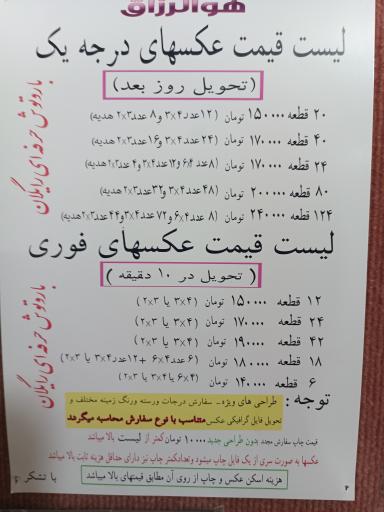 هوالرزاق
لیست قیمت عکسهای درجه یک
(تحویل روز بعد)
۲۰ قطعه ۱۵۰۰۰۰ تومان (۱۲عدد۳x۴ و ۸عدد۲x۳ هدیه)
۴۰ قطعه ۱۷۰۰۰۰ تومان (۲۴عدد۳x۴ و ۱۶عدد۲x۳ هدیه)
۲۴ قطعه ۱۷۰۰۰۰ تومان (۸عدد ۶x۴ و۱۲عدد۳x۴ و ۴عدد۲x۳ هدیه)
۸۰ قطعه ۲۰۰۰۰۰ تومان (۴۸عدد۳x۴ و ۳۲عدد۲x۳ هدیه)
۱۲۴ قطعه ۲۴۰۰۰۰ تومان (۸ عدد۶x۴ و ۷۲ عدد۳x۴ و ۴۴عدد۲x۳ هدیه)
باروتوش حرفه ای رایگان
لیست قیمت عکسهای فوری
( تحویل در ۱۰ دقیقه )
۱۲ قطعه ۱۵۰۰۰۰ تومان (۳x۴ یا ۲x۳)
۲۴ قطعه ۱۷۰۰۰۰ تومان (۳x۴ یا ۲x۳)
۴۲ قطعه ۱۹۰۰۰۰ تومان (۳x۴ یا ۲x۳)
۱۸ قطعه ۱۸۰۰۰۰ تومان (۶عدد۶x۴ +۱۲عدد۳x۴ یا ۲x۳)
۶ قطعه ۱۴۰۰۰۰ تومان (۶x۴ یا ۳x۴ یا ۲x۳)
باروتوش حرفه ای رایگان
توجه : طراحی های ویژه- سفارش درجات ورسته ورنگ زمینه مختلف و
تحویل فایل گرافیکی عکس متناسب با نوع سفارش محاسبه میگردد
قیمت چاپ سفارش مجدد بدون طراحی جدید ۱۰۰۰۰ تومان کمتر از لیست بالا میباشد
عکسها به صورت سری از یک فایل چاپ میشود وتعدادکمتر چاپ نیز دارای حداقل هزینه ثابت بالا میباشد
هزینه اسکن عکس و چاپ از روی آن مطابق قیمتهای بالا میباشد
با تشکر